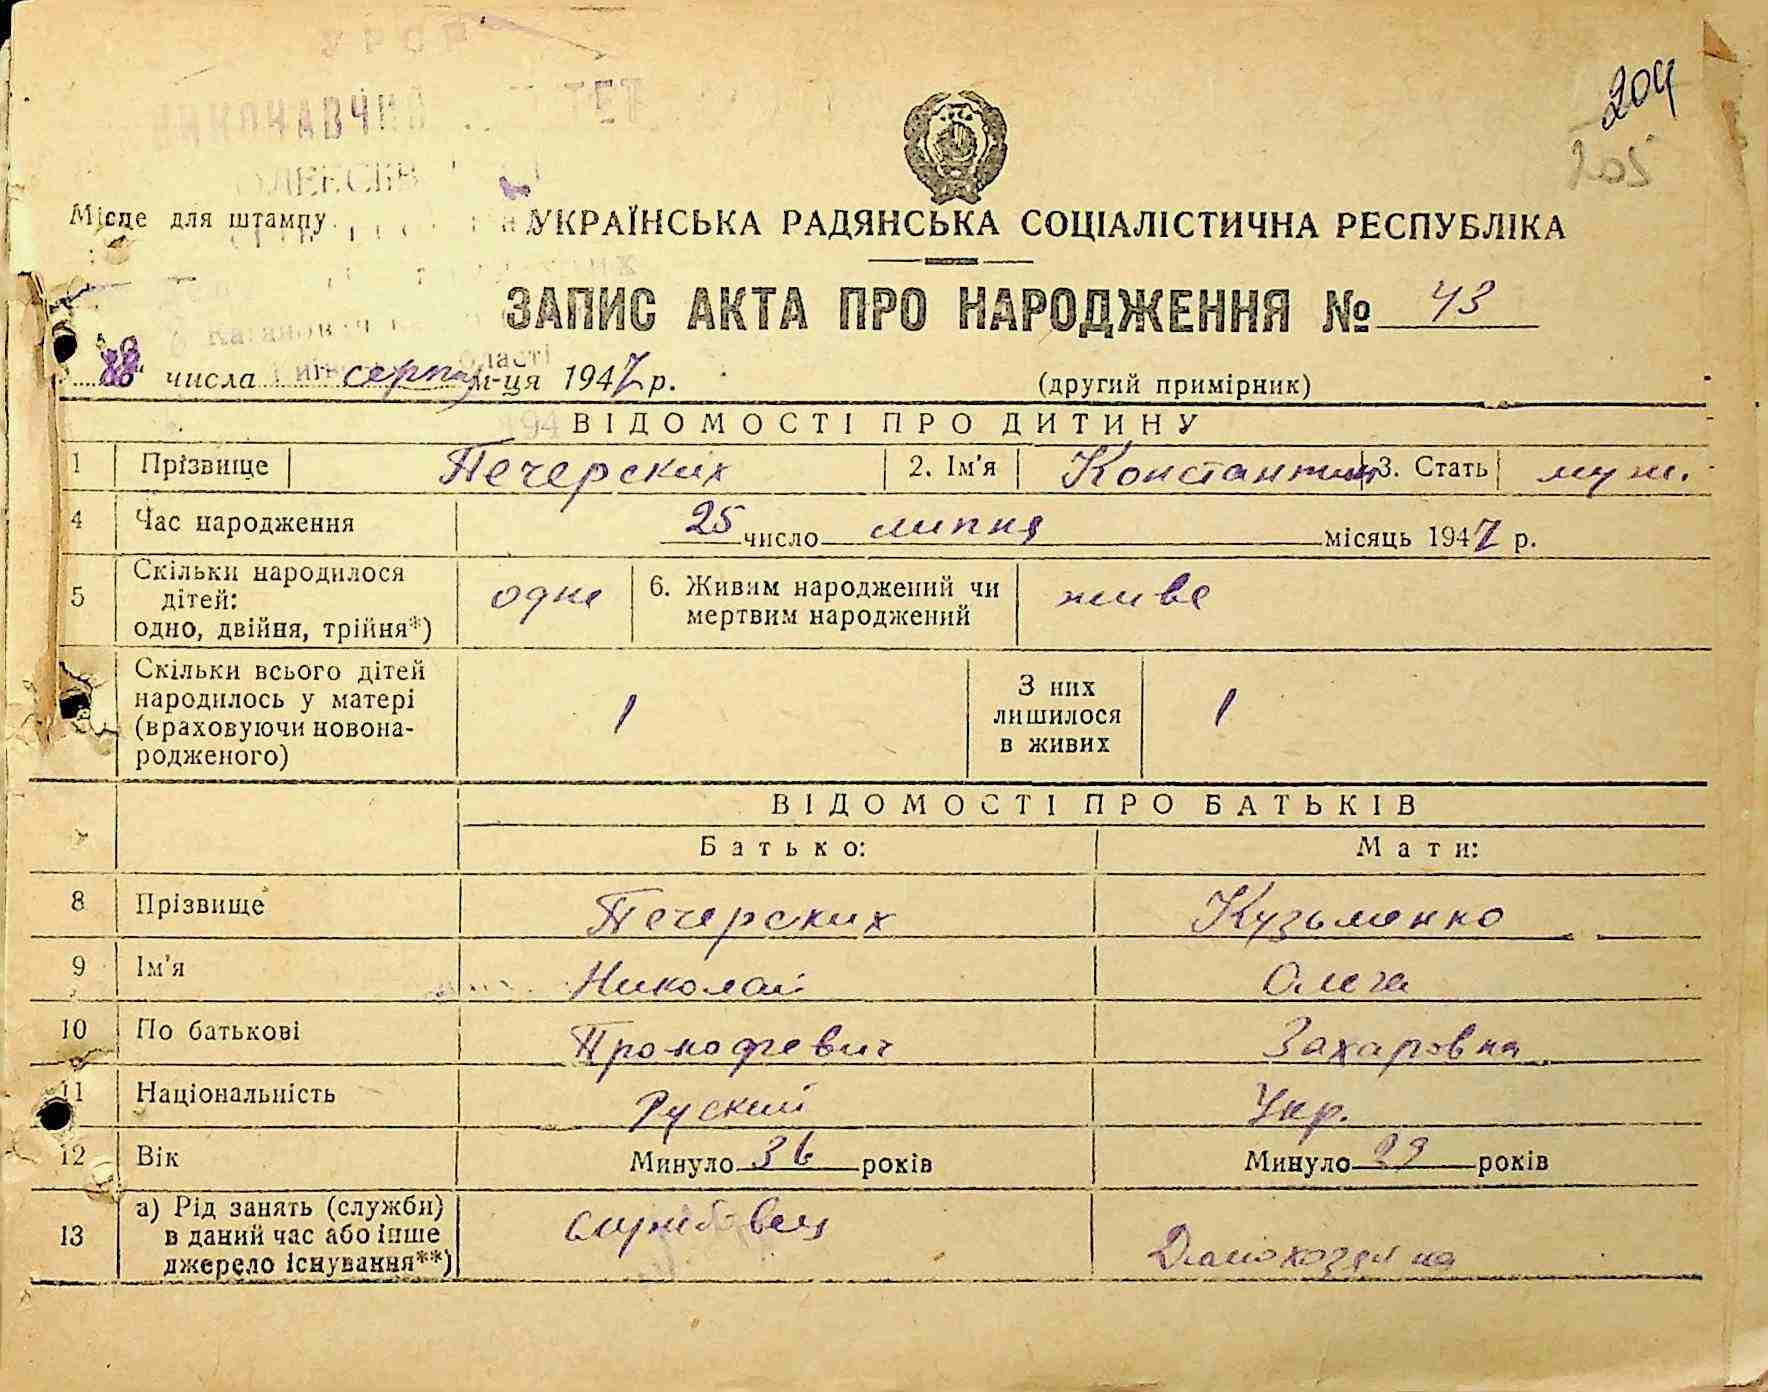 УРСР
ВИКОНАВЧИЙ
204
205
Місце для штампу
УКРАЇНСЬКА РАДЯНСЬКА СОЦІАЛІСТИЧНА РЕСПУБЛІКА
ЗАПИС АКТА ПРО НАРОДЖЕННЯ № 43
числа серпня м-ця 1947 р. (другий примірник)
ВІДОМОСТІ ПРО ДИТИНУ
1 Прізвище Печерских 2. Ім'я Константин 3. Стать муж.
4 Час народження 25 число липня місяць 1947 р.
5 Скільки народилося дітей: одно, двійня, трійня*) одне 6. Живим народжений чи мертвим народжений живе
Скільки всього дітей народилось у матері (враховуючи новонародженого) 1 З них лишилося в живих 1
ВІДОМОСТІ ПРО БАТЬКІВ
Батько: Мати:
8 Прізвище Печерских Кузьменко
9 Ім'я Николай Ольга
10 По батькові Прокофевич Захаровна
11 Національність Руский Укр.
12 Вік Минуло 36 років Минуло років
13 а) Рід занять (служби) в даний час або інше джерело існування**) службовец Домохозяйна